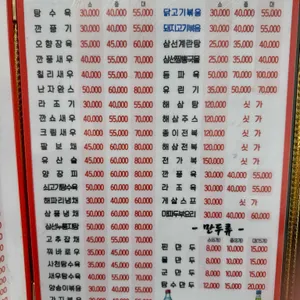 소 중 대
탕수육 30,000 40,000 55,000
깐풍기 30,000 40,000 55,000
오향장육 30,000 40,000 55,000
깐풍새우 40,000 55,000 70,000
칠리새우 40,000 55,000 70,000
난자완스 50,000 60,000 80,000
라조기 30,000 40,000 55,000
깐쇼새우 40,000 55,000 70,000
크림새우 40,000 55,000 70,000
팔보채 45,000 60,000 80,000
유산슬 45,000 60,000 80,000
양장피 45,000 60,000 80,000
쇠고기탕수육 50,000 60,000 80,000
해파리냉채 30,000 40,000 60,000
삼품냉채 50,000 60,000 80,000
50,000 60,000 80,000
고추잡채 45,000 55,000
꿔바로우 35,000 45,000
사천탕수육 35,000 45,000
새우탕수육 40,000 55,000
양송이볶음 30,000 40,000
소 중 대
닭고기볶음 30,000 40,000 55,000
돼지고기볶음 30,000 40,000 55,000
삼선계란탕 25,000 35,000
25,000 35,000
동파육 50,000 70,000 100,000
유린기 35,000 50,000
해삼탕 120,000 싯가
해삼주스 120,000 싯가
홍이전복 120,000 싯가
해삼전복 120,000 싯가
전가복 150,000 싯가
깐풍육 30,000 40,000 55,000
라조육 30,000 40,000 55,000
게살스프 싯가
마파두부요리 30,000 40,000 60,000
- 만두류 -
찐만두 8,000 10,000 15,000
물만두 8,000 10,000 15,000
군만두 8,000 10,000 15,000
탕수만두 12,000 15,000 20,000